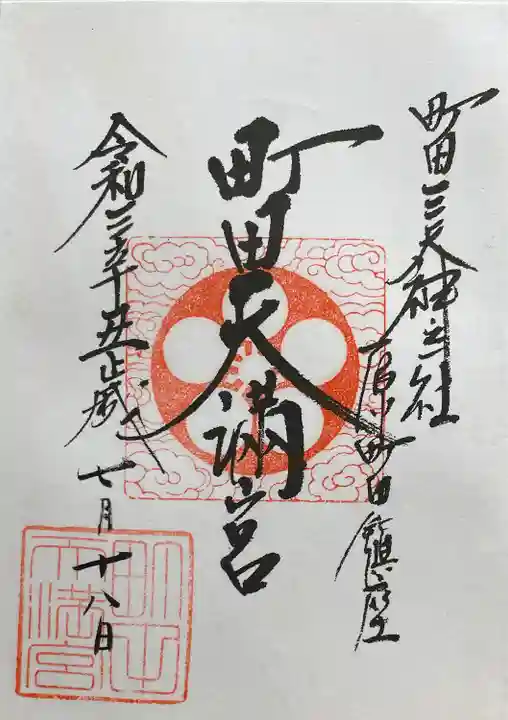 町田三天神之社
原町田鎮座
町田天満宮
令和三辛丑歳
七月十八日
町田天満宮